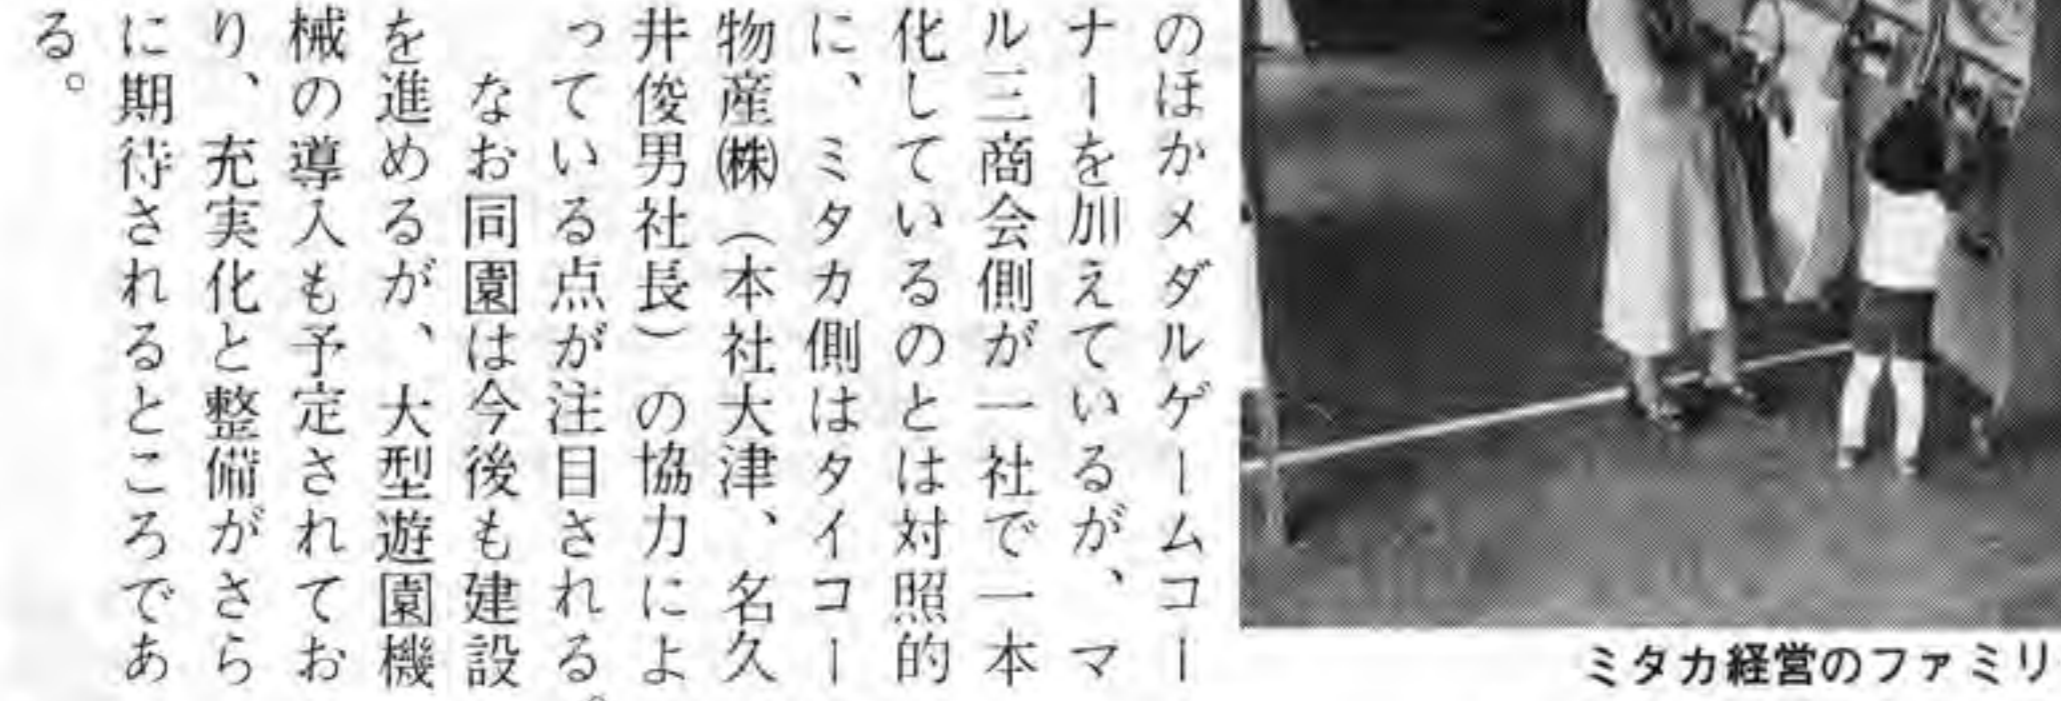 のほかメダルゲームコー
ナーを加えているが、マ
ル三商会側が一社で一本
化しているのとは対照的
に、ミタカ側はタイコー
物産㈱（本社大津、名久
井俊男社長）の協力によ
っている点が注目される。
なお同園は今後も建設
を進めるが、大型遊園機
械の導入も予定されてお
り、充実化と整備がさら
に期待されるところであ
る。
ミタカ経営のファミリ